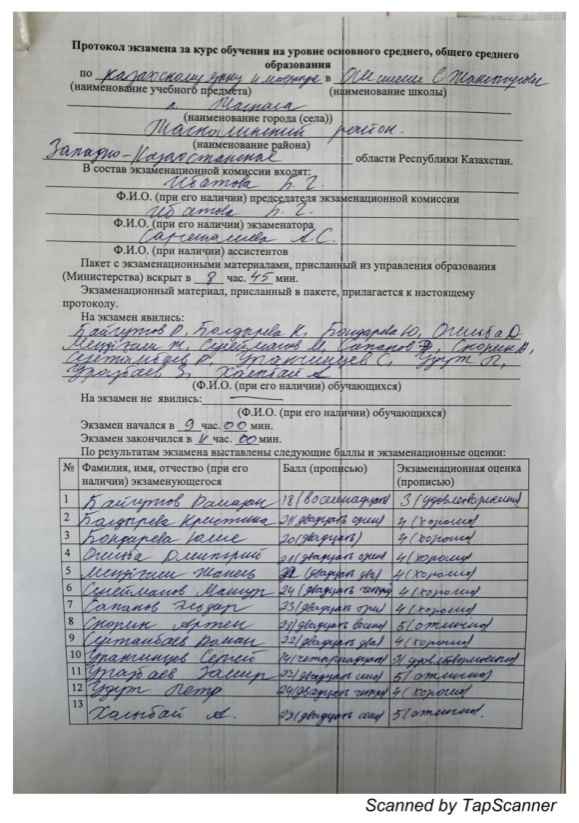 Протокол экзамена за курс обучения на уровне основного среднего, общего среднего
образования
по казахскому языку и литературе в ОШ имени С. Жаксыгулова
(наименование учебного предмета) (наименование школы)
(наименование города (села))
Таскалинский район.
(наименование района)
Западно-Казахстанская области Республики Казахстан.
В состав экзаменационной комиссии входят:
Ибатова Б. Г.
Ф.И.О. (при его наличии) председателя экзаменационной комиссии
Ибатова Б. Г.
Ф.И.О. (при его наличии) экзаменатора
А.С.
Ф.И.О. (при наличии) ассистентов
Пакет с экзаменационными материалами, присланный из управления образования
(Министерства) вскрыт в 8 час. 45 мин.
Экзаменационный материал, присланный в пакете, прилагается к настоящему
протоколу.
На экзамен явились:
Байгутов Р, Болдырева К, Бондарева Ю, Д
Сулейманов М, Сапанов Э, Скорик А,
Р, С, Удут П,
З, А
(Ф.И.О. (при его наличии) обучающихся)
На экзамен не явились:
(Ф.И.О. (при его наличии) обучающихся)
Экзамен начался в 9 час. 00 мин.
Экзамен закончился в 11 час. 00 мин.
По результатам экзамена выставлены следующие баллы и экзаменационные оценки:
№ Фамилия, имя, отчество (при его наличии) экзаменующегося Балл (прописью) Экзаменационная оценка (прописью)
1 Байгутов Рамазан 18 (восемнадцать) 3 (удовлетворительно)
2 Болдырева Кристина 21 (двадцать один) 4 (хорошо)
3 Бондарева Юлия 20 (двадцать) 4 (хорошо)
4 Дмитрий 21 (двадцать один) 4 (хорошо)
5 (двадцать два) 4 (хорошо)
6 Сулейманов Мансур 24 (двадцать четыре) 4 (хорошо)
7 Сапанов Эльдар 23 (двадцать три) 4 (хорошо)
8 Скорик Артем 28 (двадцать восемь) 5 (отлично)
9 Роман 22 (двадцать два) 4 (хорошо)
10 Сергей 14 (четырнадцать) 3 (удовлетворительно)
11 Замир 27 (двадцать семь) 5 (отлично)
12 Удут Петр 24 (двадцать четыре) 4 (хорошо)
13 А. 27 (двадцать семь) 5 (отлично).
Scanned by TapScanner